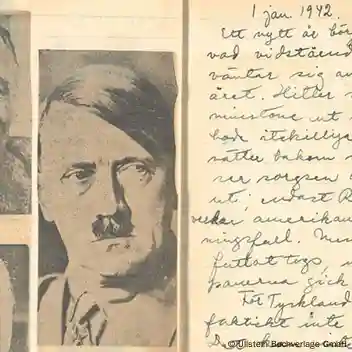 1 jan 1942.
Ett nytt år bör
vad vidstående
väntar sig av
året. Hitler s
minstone ut
både itskilliga
sätter bakom s
ser sorgsen
ut, endast R
amerikan
ningsfull. Men
futtat togs
panerna gick
För Tyskland
faktiskt inte
© Ullstein Buchverlage GmbH